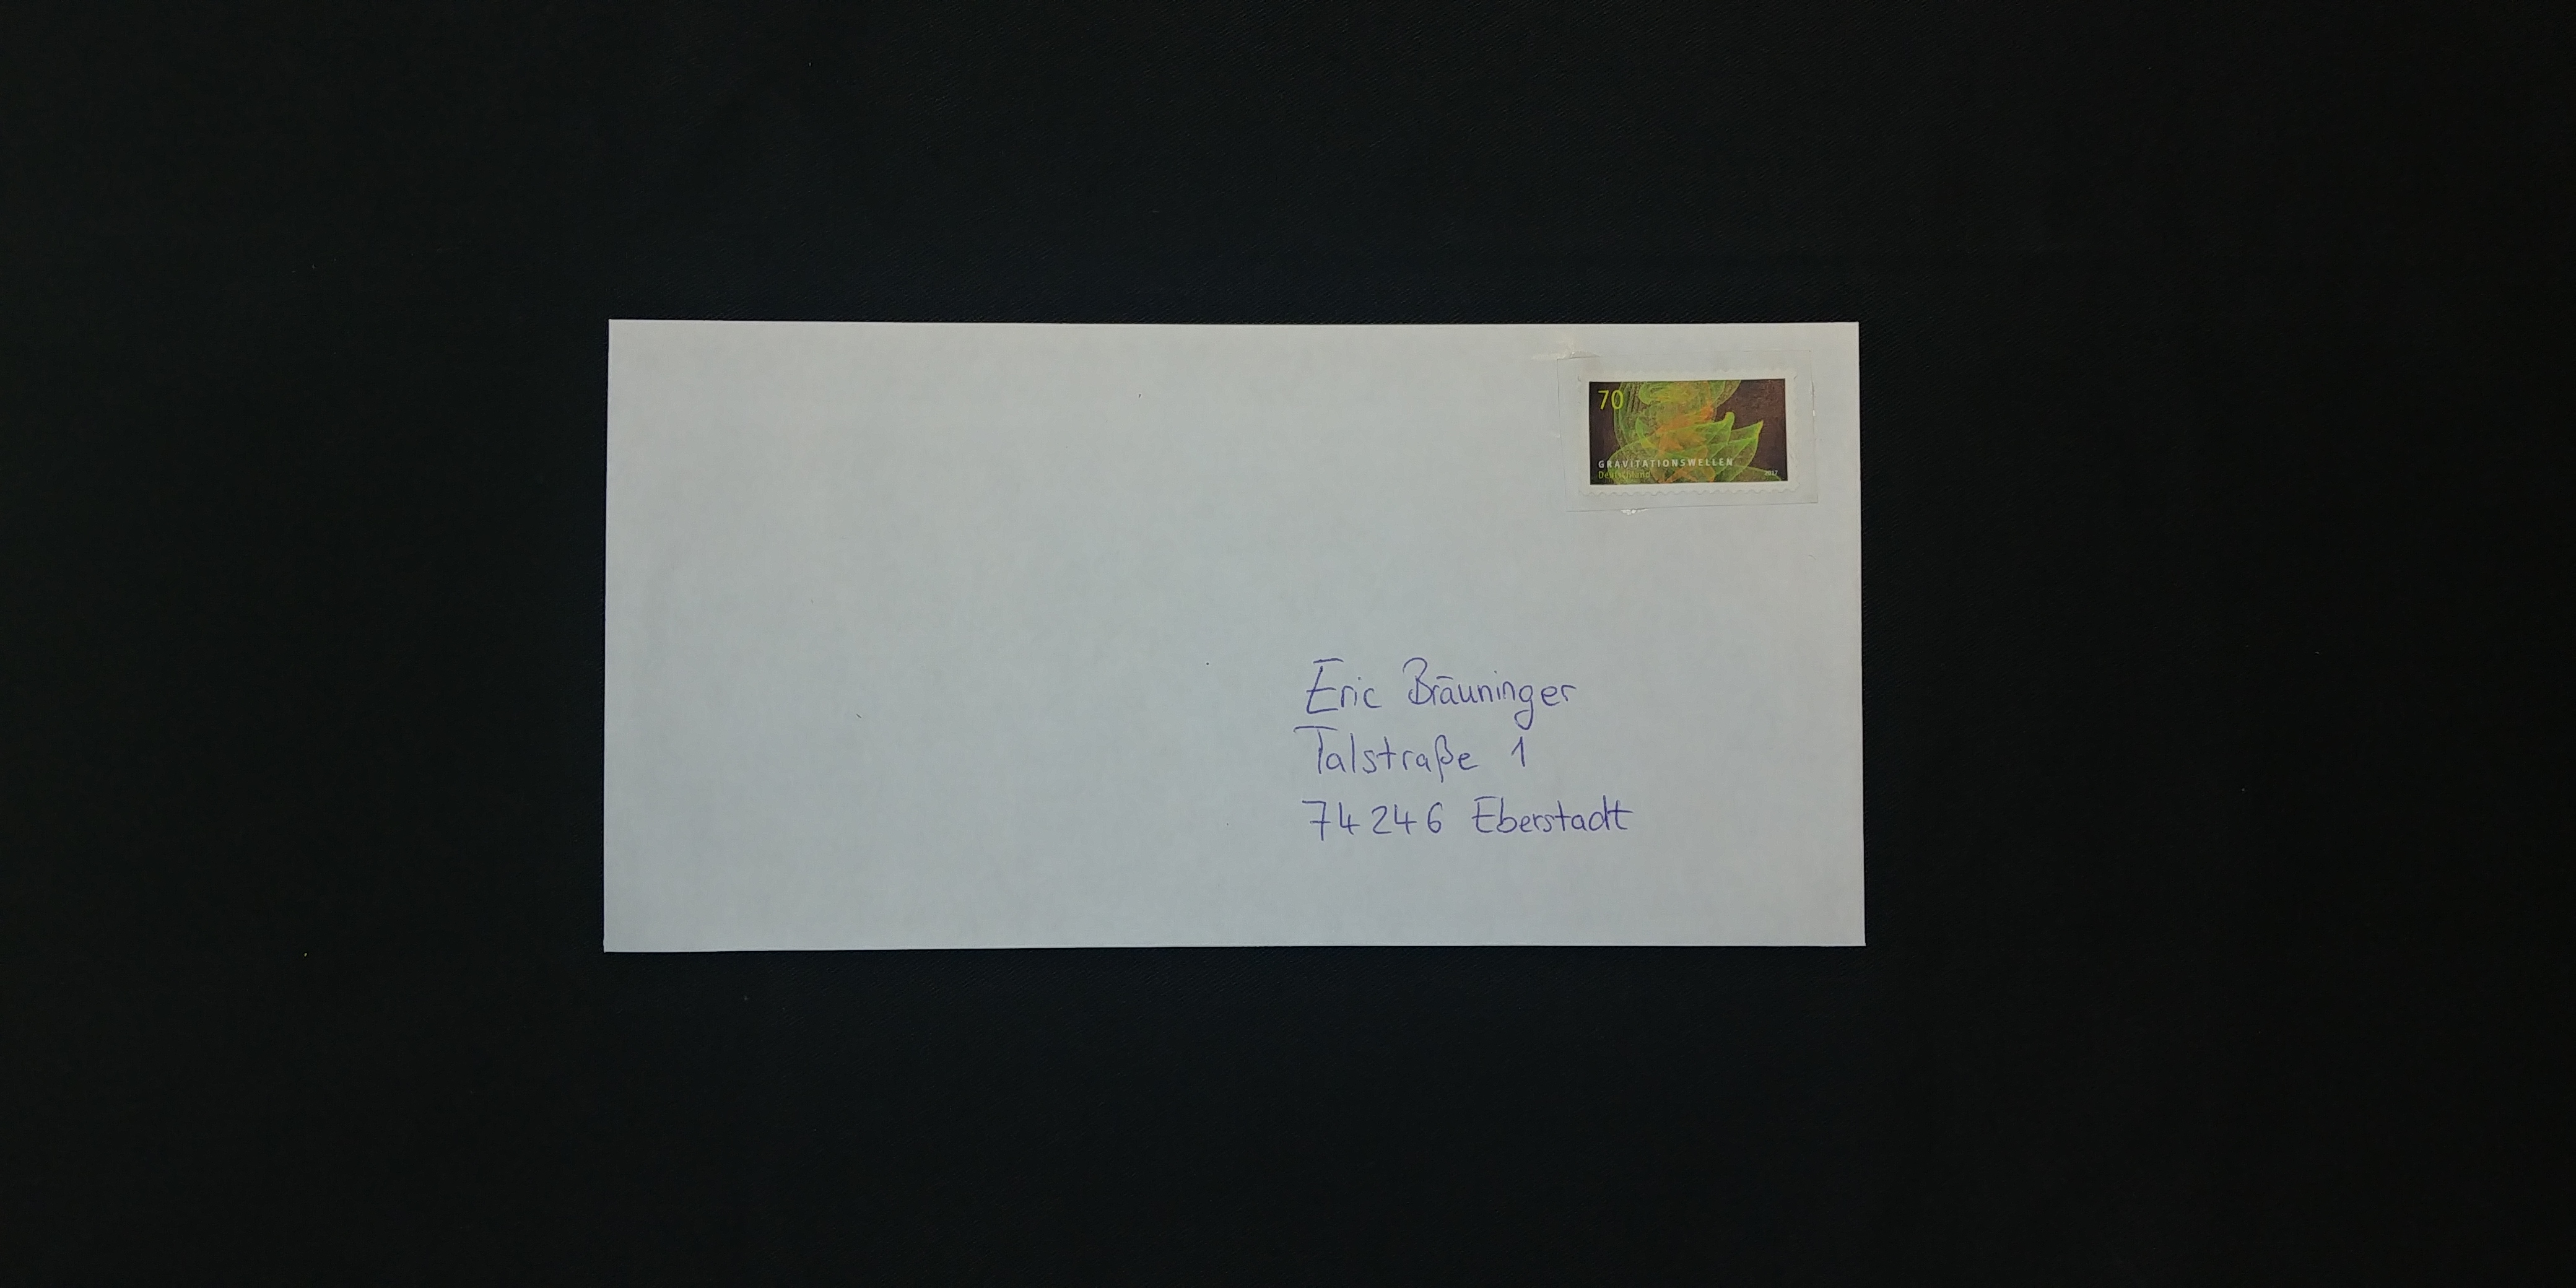 70
GRAVITATIONSWELLEN
Deutschland 2017
Eric Bräuninger
Talstraße 1
74246 Eberstadt